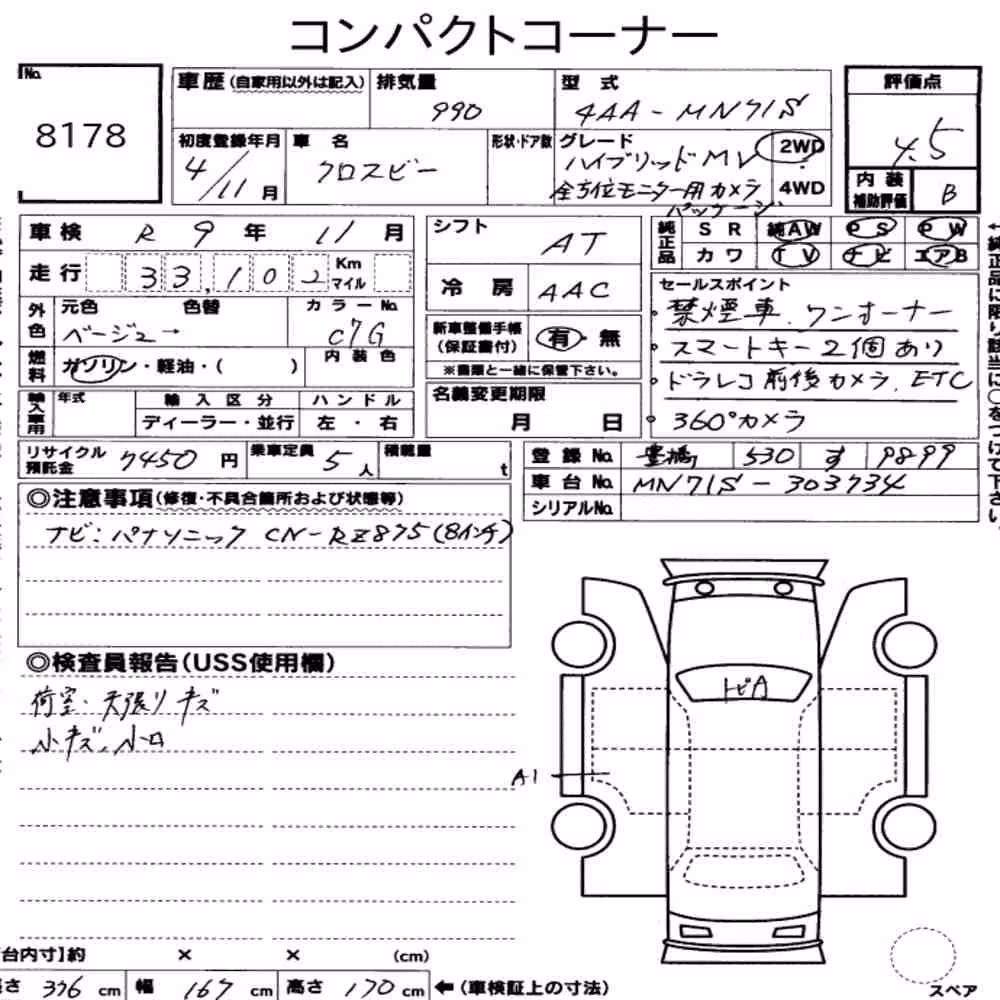 コンパクトコーナー
No.
8178
車歴(自家用以外は記入)
排気量
990
型式
4AA-MN71S
評価点
4.5
初度登録年月
4/11月
車名
クロスビー
形状・ドア数
グレード
ハイブリッドMV
全方位モニター用カメラ
パッケージ
2WD
4WD
内装
補助評価
B
車検 R 9年 11月
走行 33,102 Km マイル
シフト
AT
純正品
SR 純AW PS PW
カワ TV ナビ エアB
外色
元色 色替 カラーNo.
ベージュ→ C7G
冷房 AAC
セールスポイント
・禁煙車、ワンオーナー
・スマートキー2個あり
・ドラレコ前後カメラ、ETC
・360°カメラ
新車整備手帳
(保証書付)
有・無
※書類と一緒に保管下さい。
燃料
ガソリン・軽油・( )
内装色
名義変更期限
月 日
輸入車用
年式
輸入区分 ハンドル
ディーラー・並行 左・右
リサイクル預託金 7450円
乗車定員 5人
積載量 t
登録No. 豊橋 530 す 9899
車台No. MN71S-303734
シリアルNo.
◎注意事項(修復・不具合箇所および状態等)
ナビ:パナソニック CN-RZ875(8インチ)
◎検査員報告(USS使用欄)
荷室・天張りキズ
小キズ、小凹
トビA
A1
台内寸】約 × × (cm)
さ 376cm 幅 167cm 高さ 170cm ←(車検証上の寸法)
スペア